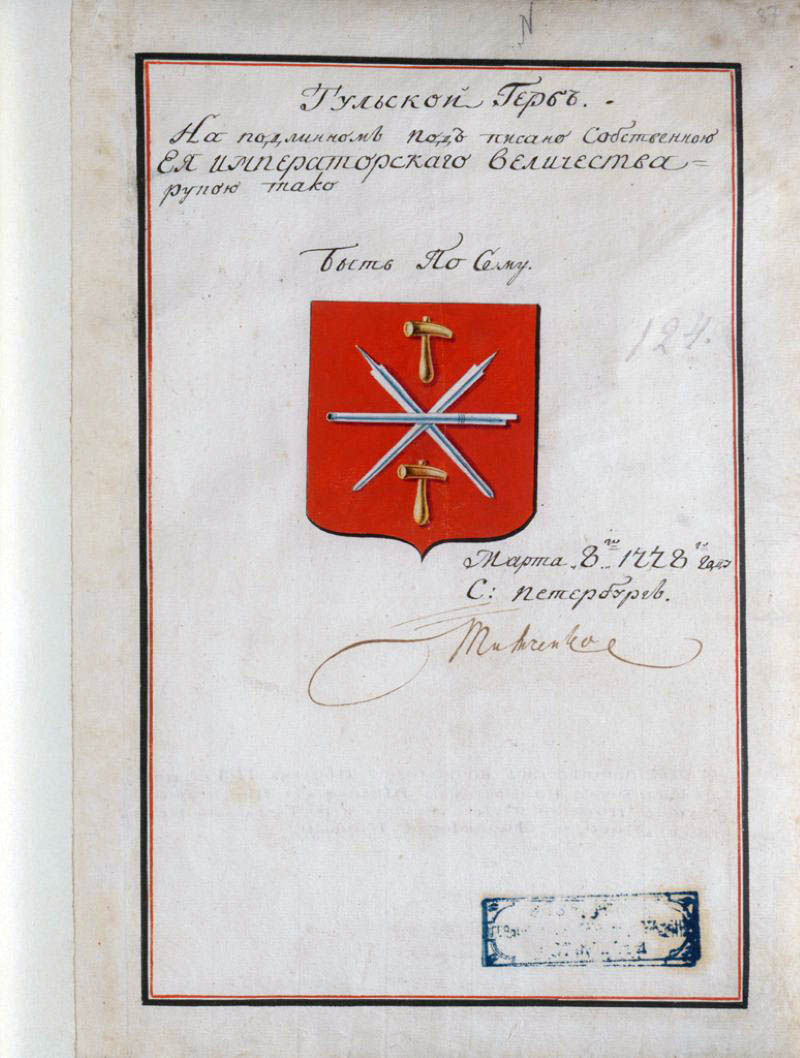 N
87
Тульской Гербъ.
На подлинномъ подъ писано Собственною
ЕЯ ИМПЕРАТОРСКАГО ВЕЛИЧЕСТВА=
рукою тако
Быть По Сему.
124.
Марта 8го 1778го Году
С: Петербургъ.